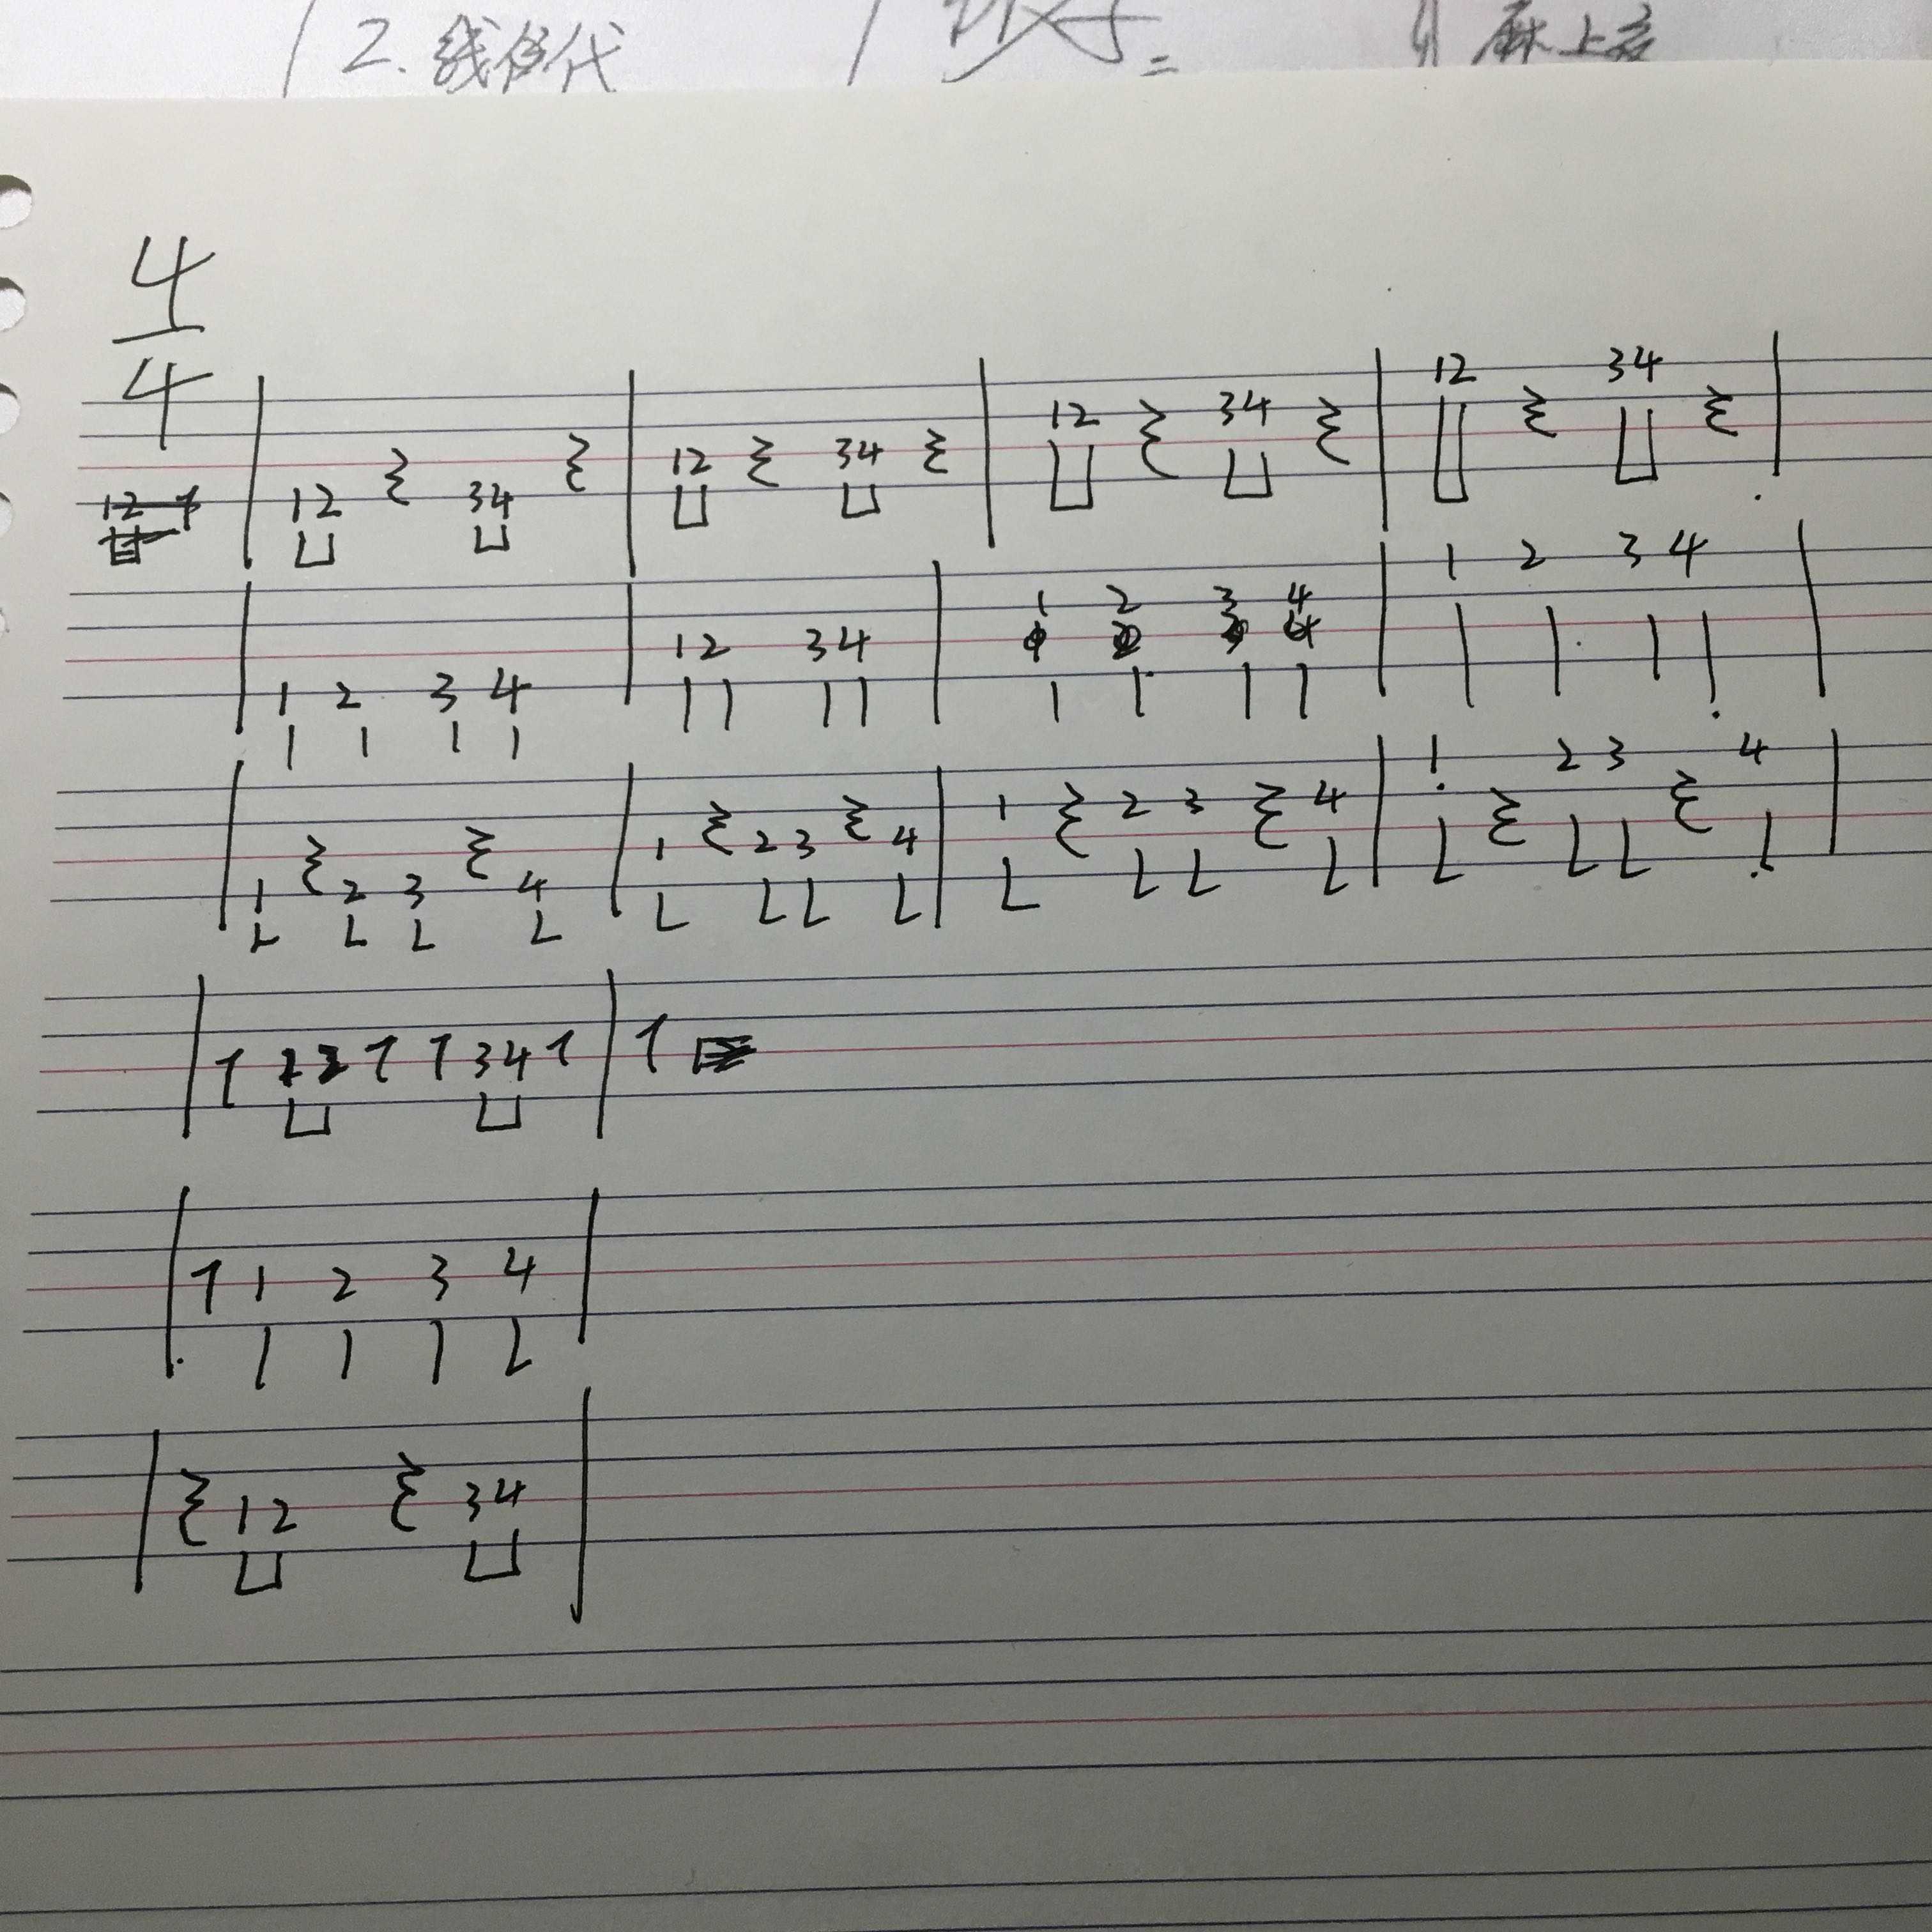 2. 线 代
4
4
12 34 12 34 12 34 12 34
1 2 3 4 12 34 1 2 3 4 1 2 3 4
1 2 3 4 1 2 3 4 1 2 3 4 1 2 3 4
34
1 2 3 4
12 34